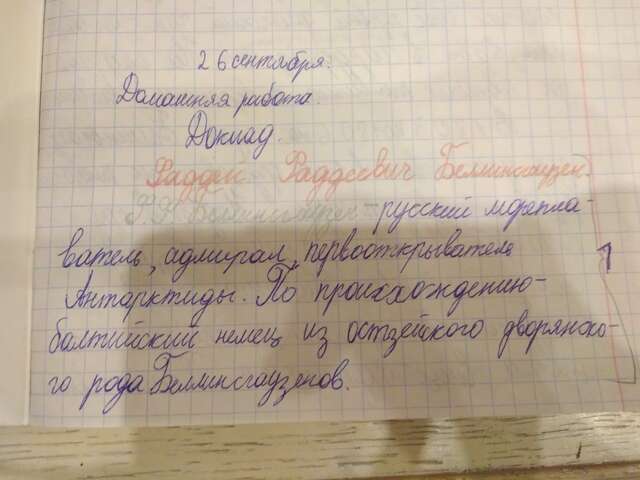 26 сентября.
Домашняя работа.
Доклад.
Фаддей Фаддеевич Беллинсгаузен.
Ф.Ф Беллинсгаузен - русский морепла-
ватель, адмирал, первооткрыватель
Антарктиды. По происхождению-
балтийский немец из остзейского дворянско-
го рода Беллинсгаузенов.
1